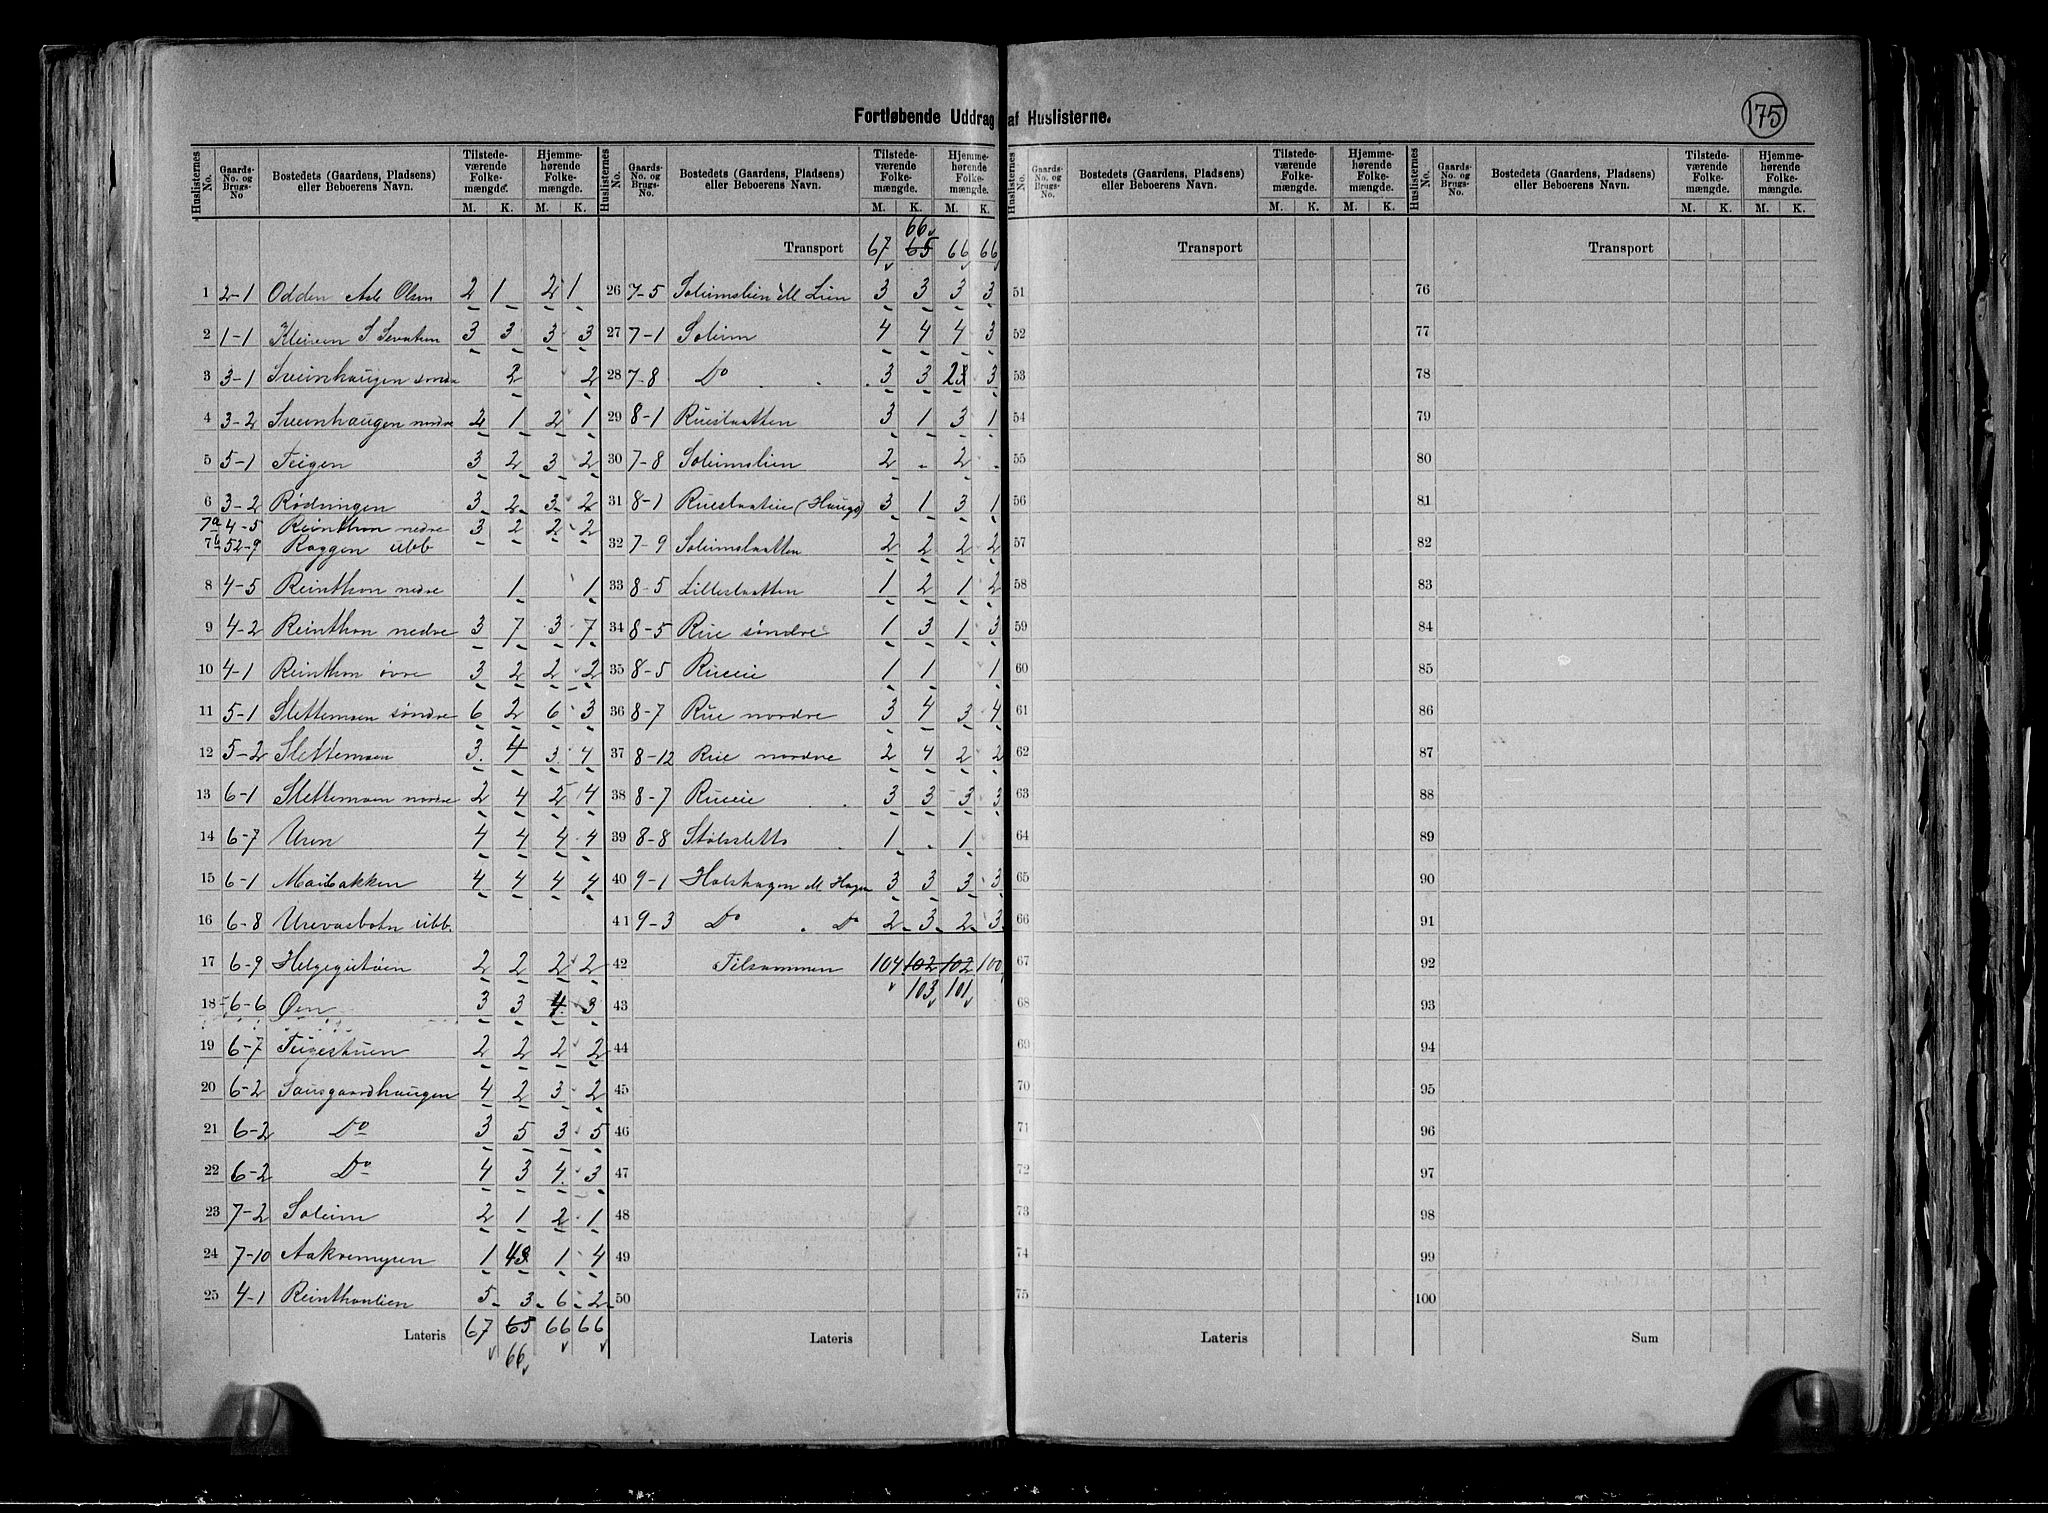 Fortløbende Uddrag af Huslisterne.
175
Huslisternes No. | Gaards-No. og Brugs-No | Bostedets (Gaardens, Pladsens) eller Beboerens Navn. | Tilstedeværende Folkemængde. M. K. | Hjemmehørende Folkemængde. M. K.
1 2-1 Odden Asle Olsen 2 1 2 1
2 1-1 Kleiven S Sevatsen 3 3 3 3
3 3-1 Sveinhaugen søndre 2 2
4 3-2 Sveinhaugen nordre 2 1 2 1
5 5-1 Teigen 3 2 3 2
6 3-2 Rødningen 3 2 3 2
7a 4-5 Reinthon nedre 3 2 2 2
7b 52-9 Roggen ubb
8 4-5 Reinthon nedre 1 1
9 4-2 Reinthon nedre 3 7 3 7
10 4-1 Reinthon øvre 3 2 2 2
11 5-1 Slettemoen søndre 6 2 6 3
12 5-2 Slettemoen 3 4 3 4
13 6-1 Slettemoen nordre 2 4 2 4
14 6-7 Uren 4 4 4 4
15 6-1 Maibakken 4 4 4 4
16 6-8 Urevasbotn ubb.
17 6-9 Helgegutøen 2 2 2 2
18 6-6 Øen 3 3 4 3
19 6-7 Teigestuen 2 2 2 2
20 6-2 Sausgaardhaugen 4 2 3 2
21 6-2 Do 3 5 3 5
22 6-2 Do 4 3 4 3
23 7-2 Soleim 2 1 2 1
24 7-10 Aakremyren 1 43 1 4
25 4-1 Reinthonlien 5 3 6 2
Lateris 67 65 66 66
66
Huslisternes No. | Gaards-No. og Brugs-No. | Bostedets (Gaardens, Pladsens) eller Beboerens Navn. | Tilstedeværende Folkemængde. M. K. | Hjemmehørende Folkemængde. M. K.
66
Transport 67 65 66 66
26 7-5 Soleimslien M Lien 3 3 3 3
27 7-1 Soleim 4 4 4 3
28 7-8 Do 3 3 23 3
29 8-1 Rueslaatten 3 1 3 1
30 7-8 Soleimslien 2 - 2 -
31 8-1 (Hauge) 3 1 3 1
32 7-9 Soleimslaatten 2 2 2 2
33 8-5 Lilleslaatten 1 2 1 2
34 8-5 Rue søndre 1 3 1 3
35 8-5 Rueeie 1 1 1
36 8-7 Rue nordre 3 4 3 4
37 8-12 Rue nordre 2 4 2 2
38 8-7 Rueeie 3 3 3 3
39 8-8 Stølssletto 1 . 1
40 9-1 Holshagen M Hagen 3 3 3 3
41 9-3 Do Do 2 3 2 3
42 Tilsammen 104 102 102 100
43 103 101
44
45
46
47
48
49
50
Lateris
Huslisternes No. | Gaards-No. og Brugs-No. | Bostedets (Gaardens, Pladsens) eller Beboerens Navn. | Tilstedeværende Folkemængde. M. K. | Hjemmehørende Folkemængde. M. K.
Transport
51
52
53
54
55
56
57
58
59
60
61
62
63
64
65
66
67
68
69
70
71
72
73
74
75
Lateris
Huslisternes No. | Gaards-No. og Brugs-No. | Bostedets (Gaardens, Pladsens) eller Beboerens Navn. | Tilstedeværende Folkemængde. M. K. | Hjemmehørende Folkemængde. M. K.
Transport
76
77
78
79
80
81
82
83
84
85
86
87
88
89
90
91
92
93
94
95
96
97
98
99
100
Sum